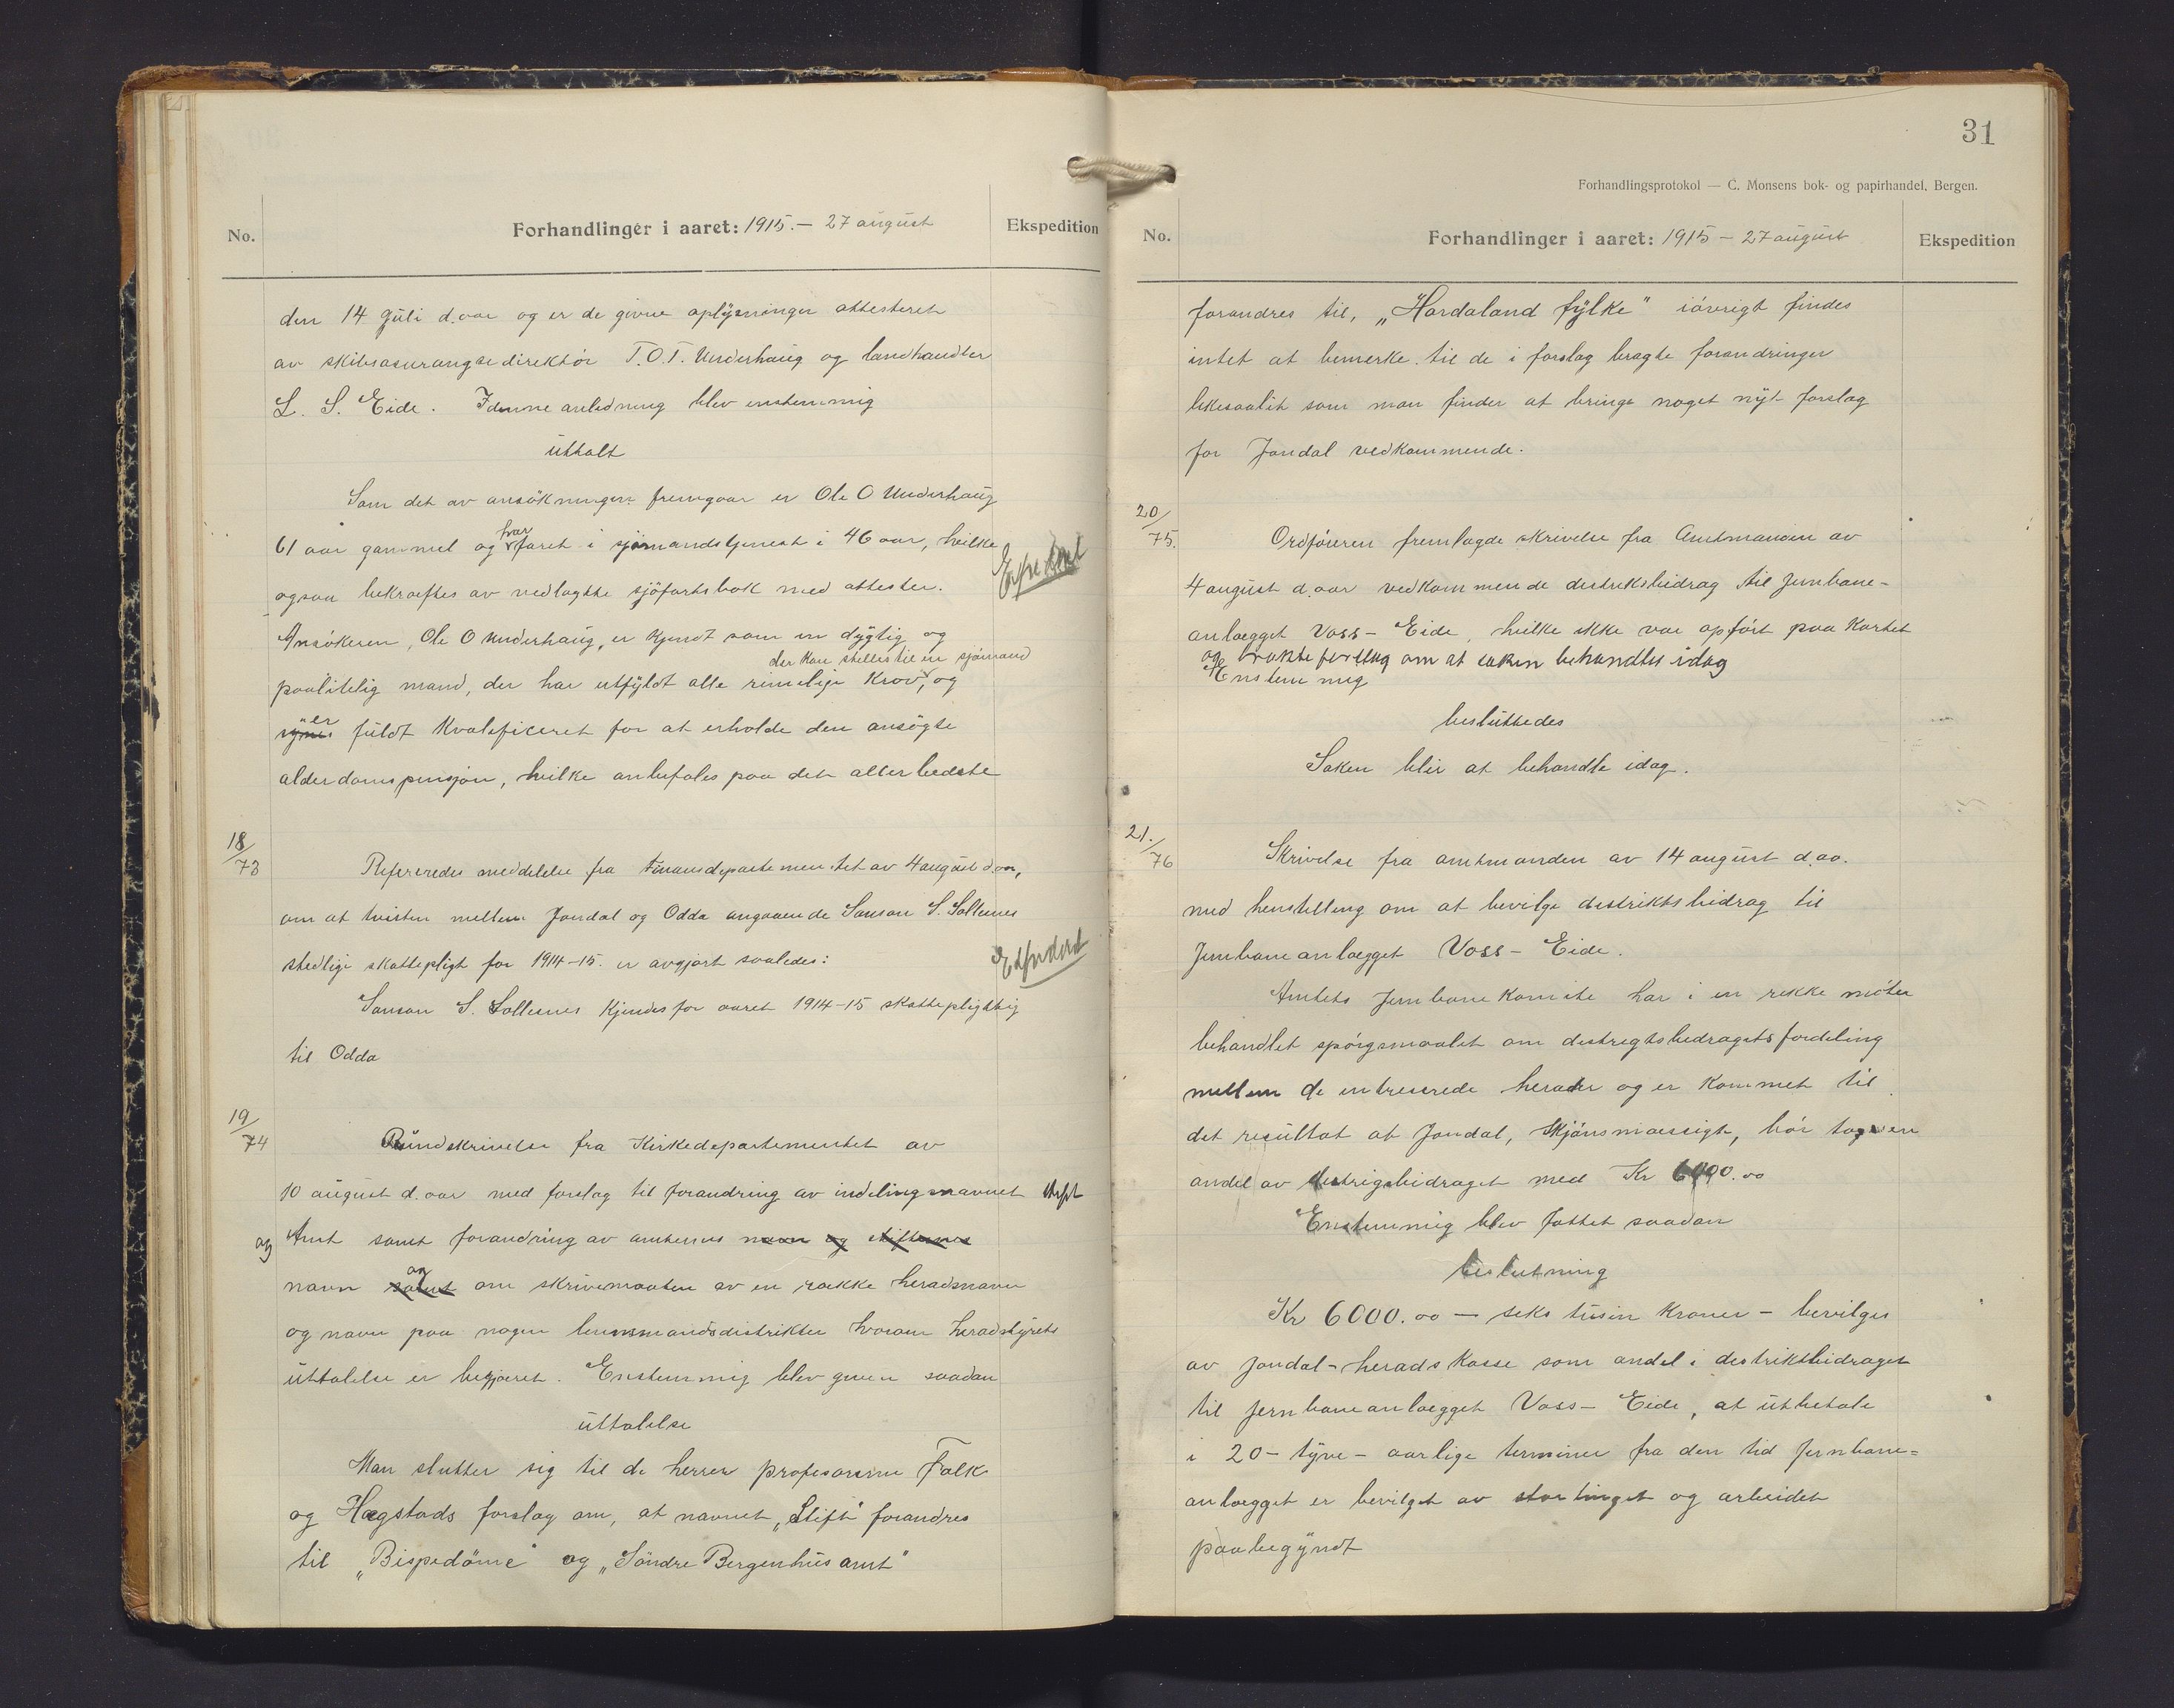 No.
Forhandlinger i aaret: 1915. — 27 august
Ekspedition
den 14 Juli d.aar og er de givne oplysninger attesteret
av skibsasurangsedirektør T.O.T. Underhaug og landhandler
L. S. Eide. I denne anledning blev enstemmig
uttalt
Som det av ansökningen fremgaar er Ole O Underhaug
61 aar gammel og har faret i sjømandstjenest i 46 aar, hvilke
ogsaa bekraeftes av vedlagte sjöfartsbok med attester.
Ansökeren, Ole O Underhaug, er kjendt som en dygtig og
der kan stilles til en sjömand
paalitelig mand, der har utfyldt alle rimelige krav, og
synes er fuldt kvalificeret for at erholde den ansögte
alderdomspensjon, hvilke anbefales paa det allerbedste
18/73
Refereredes meddelelse fra Finansdepartementet av 4 august d.aar,
om at tvisten mellem Jondal og Odda angaaende Samson S. Sollesnes
stedlige skattepligt for 1914-15. er avgjort saaledes:
Ekspedert
Samson S. Sollesnes kjendes for aaret 1914-15 skattepligtig
til Odda
19/74
Rundskrivelse fra Kirkedepartementet av
10 august d.aar med forslag til forandring av indelingsnavnet
Amt samt forandring av amternes navn og stifternes
og
navn samt og om skrivemaaten av en række heradsnavn
og navn paa nogen lensmandsdistrikter hvorom heradstyrets
uttalelse er begjæret. Enstemmig blev given saadan
uttalelse
Man slutter sig til de herrer profesorerne Falk
og Hægstads forslag om, at navnet „Stift" forandres
til „Bispedöme" og „Söndre Bergenhus amt"
31
Forhandlingsprotokol — C. Monsens bok- og papirhandel, Bergen.
No.
Forhandlinger i aaret: 1915 — 27 august
Ekspedition
forandres til, „Hordaland fylke" iövrigt findes
intet at bemerke til de i forslag bragte forandringer
likesaalit som man finder at bringe noget nyt forslag
for Jondal vedkommende.
20/75.
Ordföreren fremlagde skrivelse fra Amtmanden av
4 august d.aar vedkommende destriksbidrag til jernbane-
anlægget Voss – Eide, hvilke ikke var opfört paa kartet
og brakte forslag om at saken behandles idag
Enstemmig
besluttedes
Saken blir at behandle idag.
21./76
Skrivelse fra amtmanden av 14 august d.aa.
med henstilling om at bevilge distriktsbidrag til
Jernbaneanlægget Voss – Eide.
Amtets Jernbanekomite har i en rekke möter
behandlet spörgsmaalet om destrigtsbedragets fordeling
mellem de entreserede herader og er kommet til
det resultat at Jondal, skjönsmæssigt, bör ta en
andel av destrigsbidraget med Kr 6000.00
Enstemmig blev fattet saadan
beslutning
Kr 6000.00 — seks tusin kroner – bevilges
av Jondal-herads kasse som andel i destriktbidraget
til jernbaneanlægget Voss – Eide, at utbetale
i 20 – tyve – aarlige terminer fra den tid Jernbane=
anlægget er bevilget av stortinget og arbeidet
paabegyndt